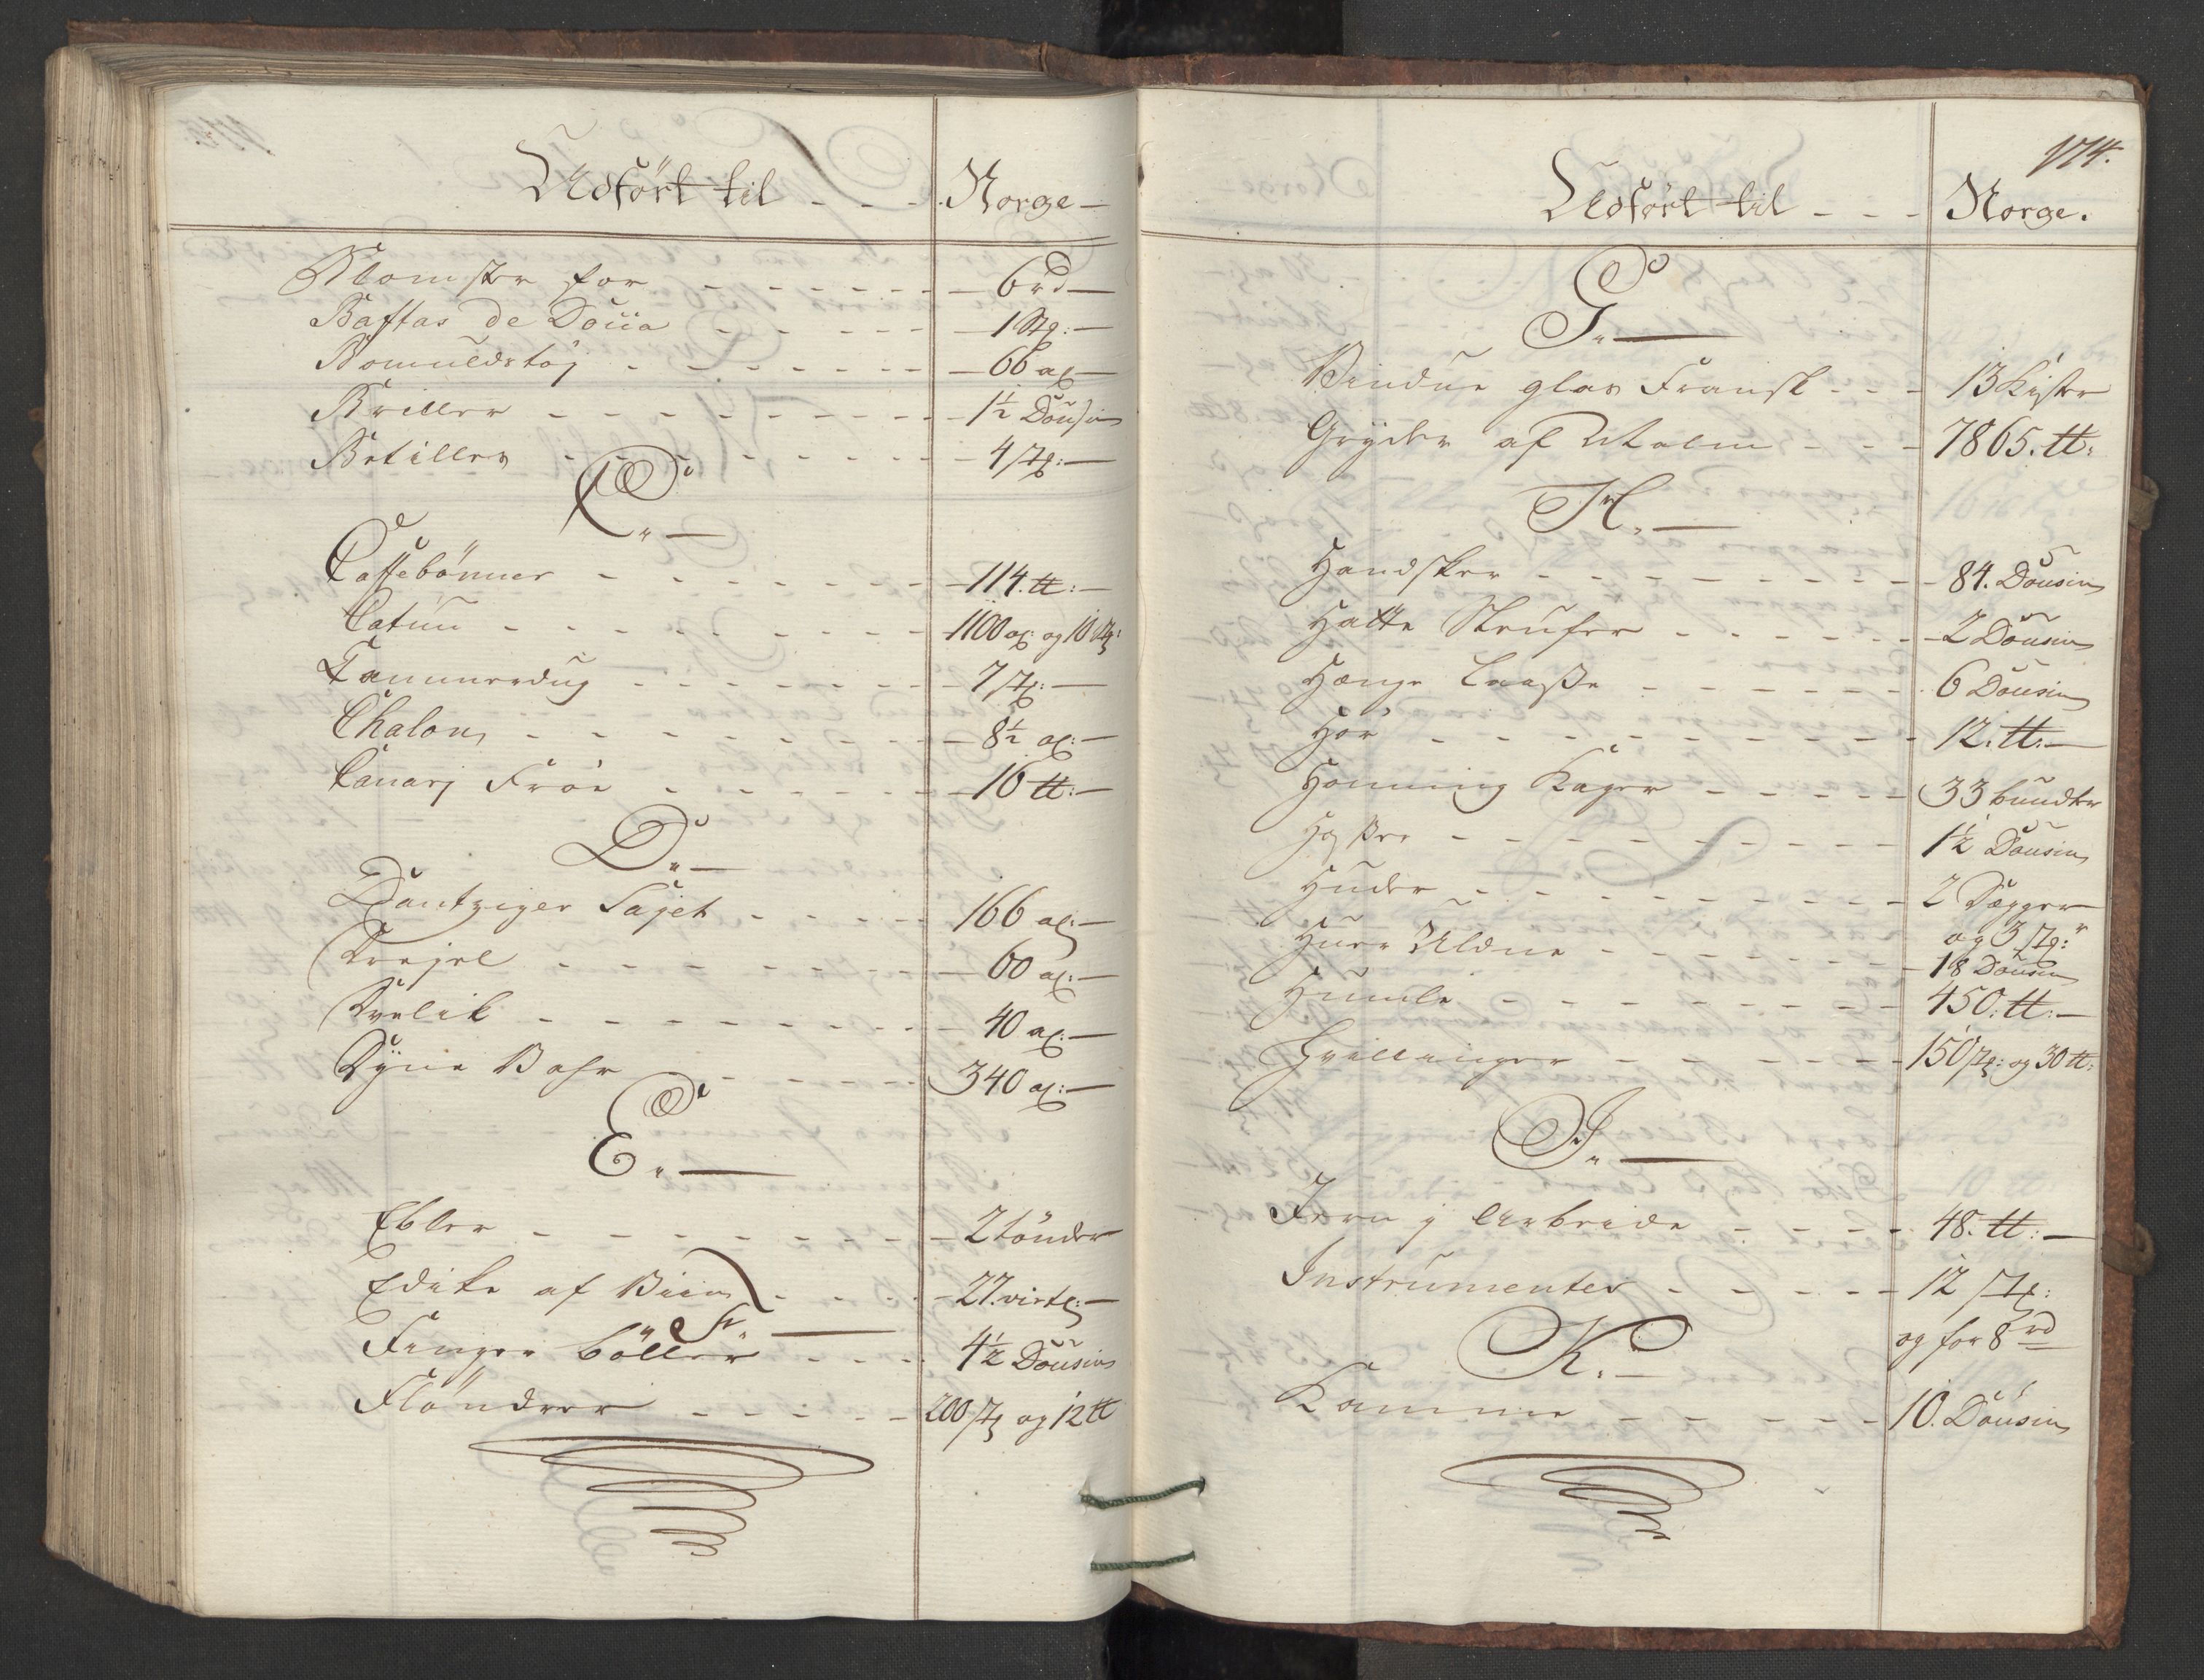 Udført til - - - Norge -
Blomster for - - - - - - 6 rd -
Baftas de Soüa - - - - - 1 Stq: -
Bomuldstøj - - - - - - 66 al -
Briller - - - - - - - 1½ Dousin
Botiller - - - - - - 4 stq: -
C. -
Caffebønner - - - - - - 114. ℔: -
Catün - - - - - - - 1100 al: og 10 stq:
Cammerdug - - - - - - 7 stq: -
Chalon - - - - - - - 8½ al: -
Canarj Frøe - - - - - - 16 ℔: -
D. -
Dantziger Sajet - - - - 166 al: -
Drejel - - - - - - - 60 al: -
Dvelik - - - - - - - 40 al: -
Dÿne Vahr - - - - - 340 al: -
E. -
Ebler - - - - - - - 2 tönder
Edike af Viin - - - - 27. virtl: -
F. -
Finger böller - - - - 4½ Dousin
Flöndrer - - - - - 200 stq og 12 ℔
174.
Udført til - - - Norge.
G. -
Vindue glas Fransk - - - 13 Kister
Gryder af Malm - - - 7865. ℔:
H. -
Handsker - - - - - - - 84. Dousin
Hatte Strufer - - - - - - 2 Dousin
Hænge Laaße - - - - - - 6 Dousin
Hör - - - - - - - - - 12. ℔: -
Honning Kager - - - - - 33 bundter
- - - - - - - - - 1½ Dousin
Huder - - - - - - - - 2 Degger
og 3 stq:
Huer Uldne - - - - - - - 18 Dousin
Humle - - - - - - - - 450. ℔: -
Hvillinger - - - - - - 150 stq: og 30 ℔:
I. -
Jern j Arbeide - - - - - 48. ℔: -
Instrumenter - - - - - 12 stq:
og for 8 rd
K. -
Kamme - - - - - - 10. Dousin